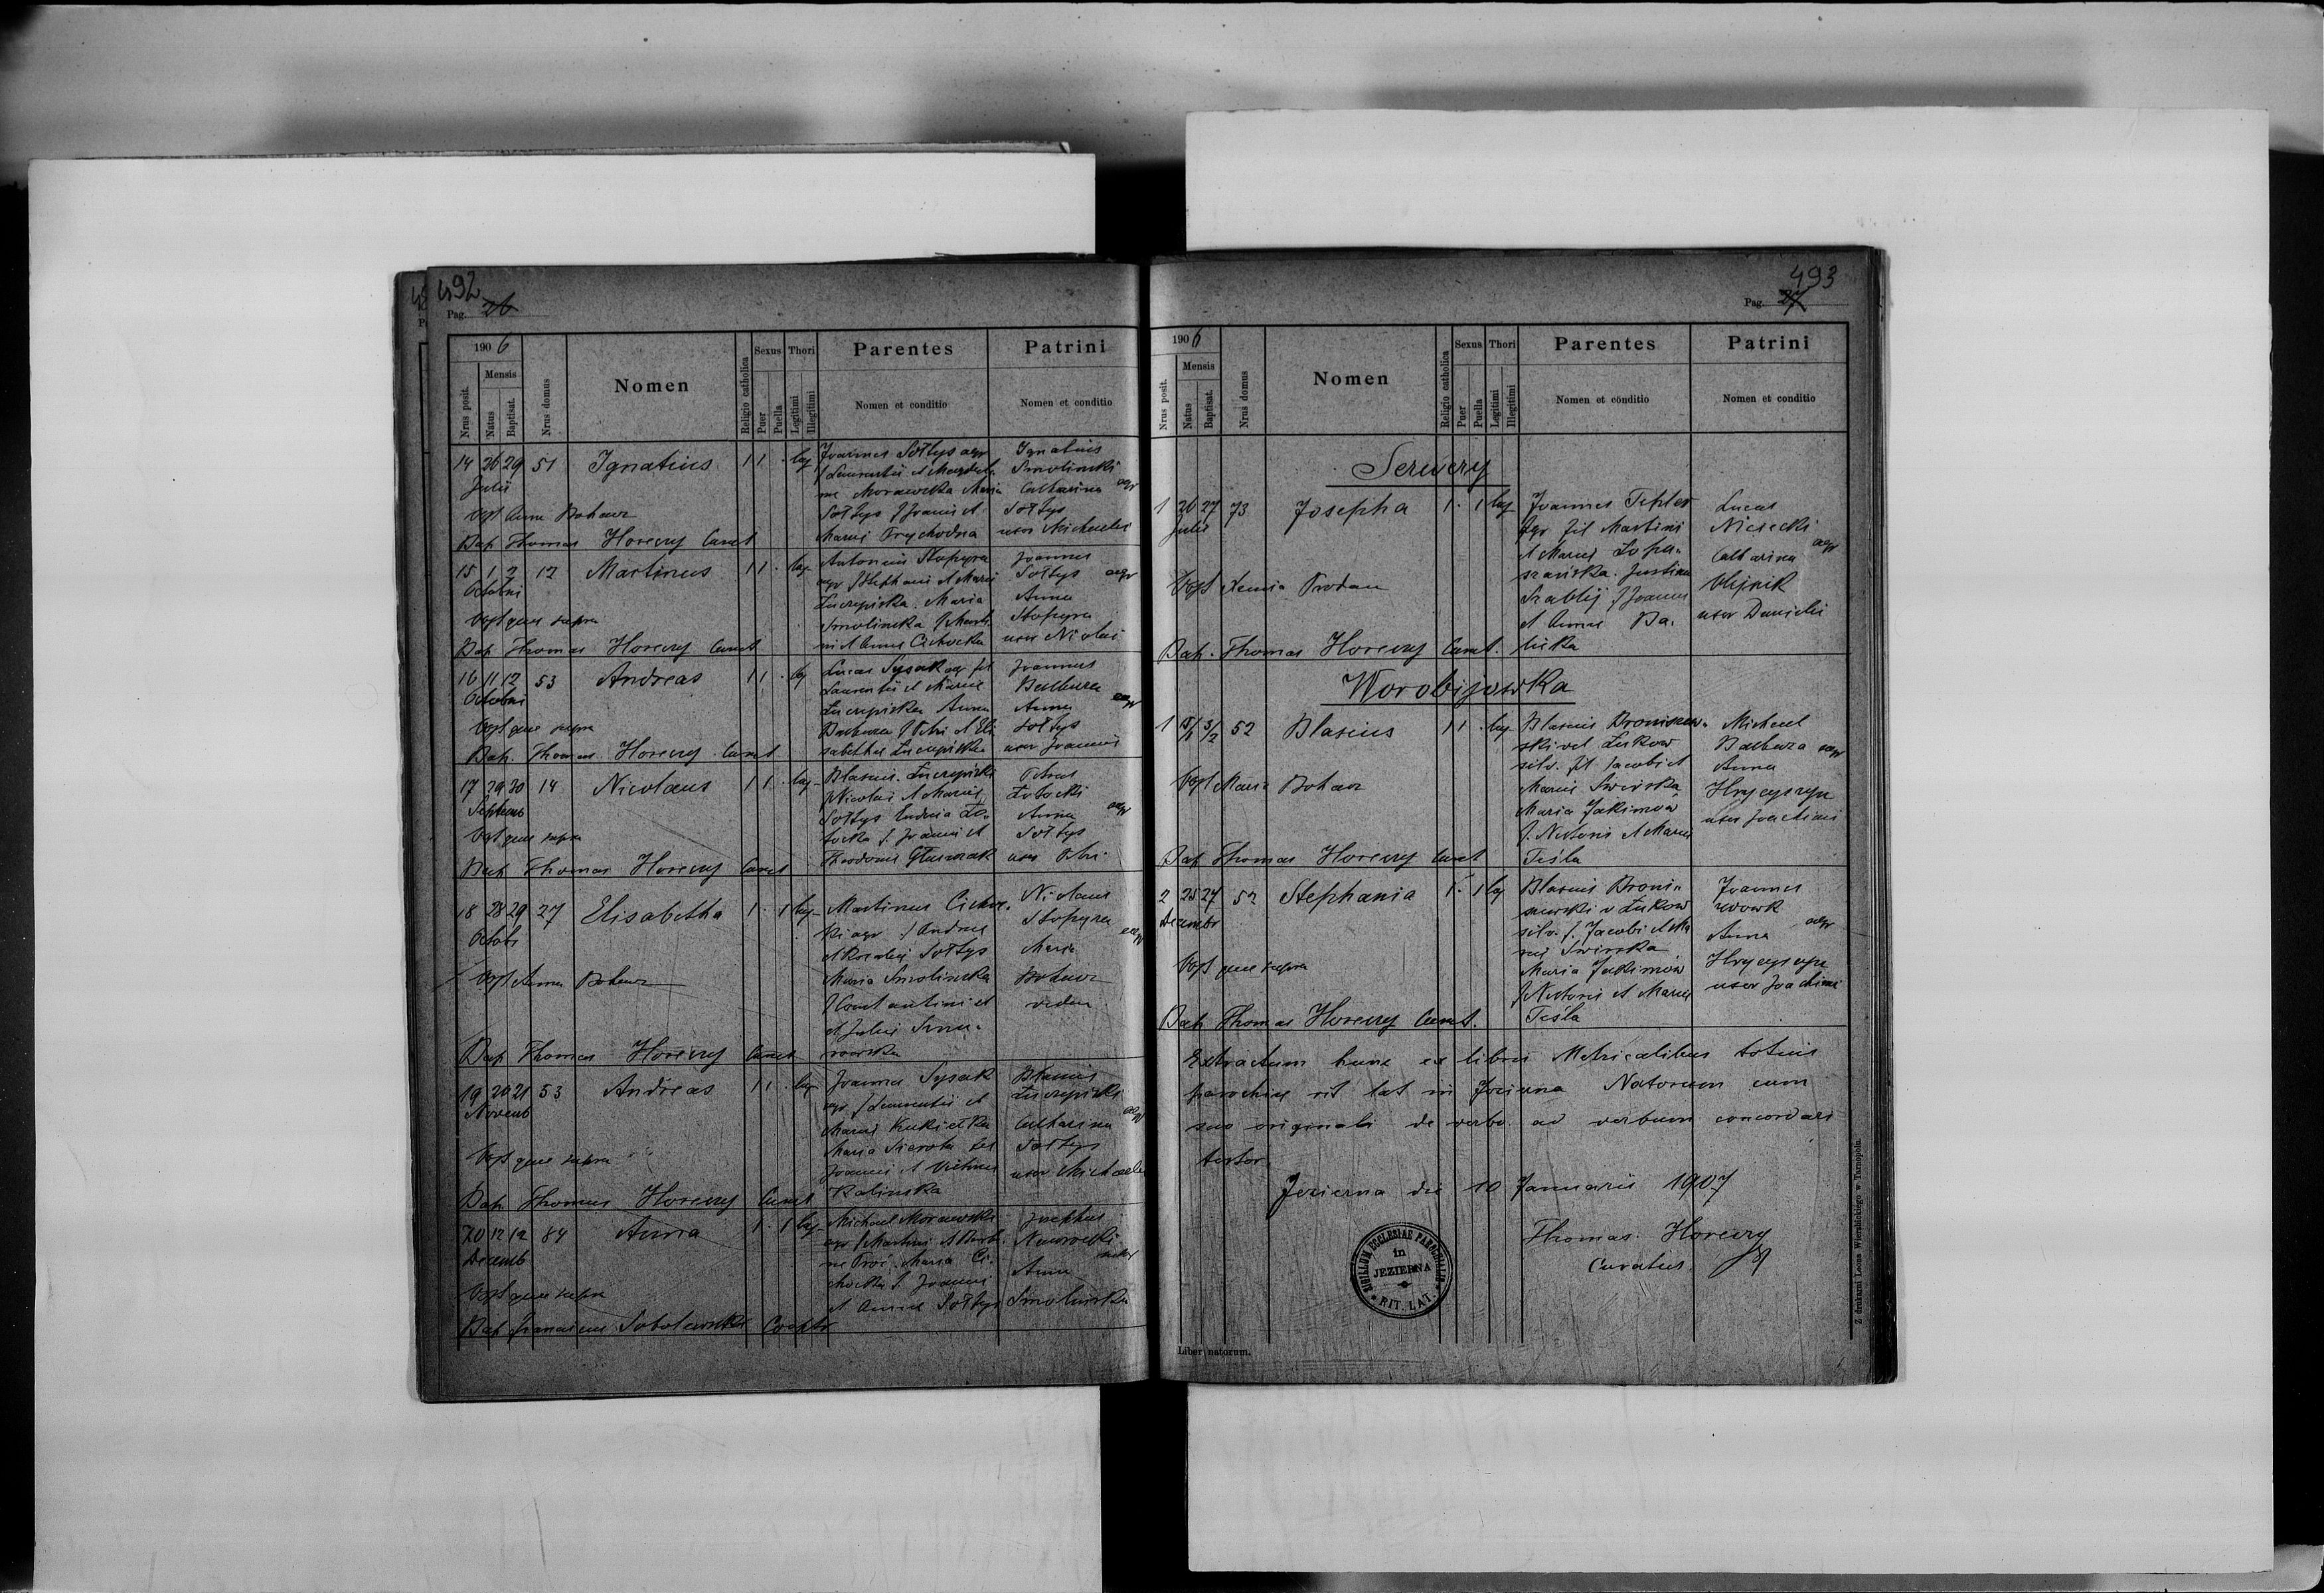 492
Pag. 26
1906
Nrus posit.
Mensis
Natus
Baptisat.
Nrus domus
Nomen
Religio catholica
Sexus
Puer
Puella
Thori
Legitimi
Illegitimi
Parentes
Nomen et conditio
Patrini
Nomen et conditio
14 26 29 51 Ignatius 1 1 . leg
Julii
Joannes Sołtys agr
f Laurentii et Magdale
nae Morawska Maria
Sołtys f Joannis et
Mariae
Ignatius
Smoliński
Catharina agr
Sołtys
uxor Michaelis
Obst Anna Bohacz
Bap Thomas Horeczy Curat
15 1 2 12 Martinus 1 1 . leg
Octobri
Antonius Stopyra
agr f Stephani et Mariae
Maria
Smolinska f Marti
ni et Annae Cichocka
Joannes
Sołtys agr
Anna
Stopyra
uxor Nicolai
Obst quae supra
Bap Thomas Horeczy Curat
16 11 12 53 Andreas 1 1 . leg
Octobri
Lucas Sysak agr fil
Laurentii et Mariae
Anna
Barbura f Petri et Eli
sabethae
Joannes
Barbura
Anna agr
Sołtys
uxor Joannis
Obst quae supra
Bap. Thomas Horeczy Curat
17 29 30 14 Nicolaus 1 1 . leg
Septemb
Blasius
f Nicolai et Mariae
Sołtys Eudocia Zo
tocka f. Joannis et
Theodorae Głuszczak
Petrus
Zotocki
Anna agr
Sołtys
uxor Petri
Obst quae supra
Bap Thomas Horeczy Curat
18 28 29 27 Elisabetha 1 . 1 leg
Octobr
Martinus Cichoc
ki agr f Andreae
et Rosaliae Sołtys
Maria Smolinska
f Constantini et
et Juliae
Nicolaus
Stopyra agr
Maria
Bohacz
vidua
Obst Anna Bohacz
Bap Thomas Horeczy Curat
19 20 21 53 Andreas 1 1 . leg
Novemb
Joannes Sysak
agr f Laurentii et
Mariae
Maria Sierota fil
Joannis et
Kalinska
Blasius
Catharina agr
Sołtys
uxor Michaelis
Obst quae supra
Bap Thomas Horeczy Curat
20 12 12 84 Anna 1 . 1 leg
Decemb
Michael Morawski
agr f Martini et Barba
rae Maria Ci
chocka f. Joannis
et Annae Sołtys
Josephus
Anna
Smolinska
Obst quae supra
Bap Franciscus Sobolewski Cooptr
493
Pag. 27
1906
Nrus posit.
Mensis
Natus
Baptisat.
Nrus domus
Nomen
Religio catholica
Sexus
Puer
Puella
Thori
Legitimi
Illegitimi
Parentes
Nomen et conditio
Patrini
Nomen et conditio
Serwery
1 26 27 73 Josepha 1 . 1 leg
Julii
Joannes
agr fil Martini
et Mariae Łopu
szańska. Justina
Szablij f Joannis
et Annae Ba
licka
Lucas
Nisiecki
Catharina agr
Olejnik
uxor Danielis
Obst Xenia Prodan
Bap. Thomas Horeczy Curat.
Worobijowka
1 15/1 3/2 52 Blasius 1 1 . leg
Blasius Broniszew
ski vel Łukow
silv. fil Jacobi et
Mariae Swirska
Maria Jakimow
f. Nestoris et Mariae
Teśla
Michael
Barbura agr
Anna
Hrycyszyn
uxor Joachimi
Obst Maria Bohacz
Bap Thomas Horeczy Curat
2 25 27 52 Stephania 1 . 1 leg
Decembr
Blasius Broni
szewski v Łukow
silv. f. Jacobi et Ma
riae Swirska
Maria Jakimow
f Nestoris et Mariae
Teśla
Joannes
Wowk
Anna agr
Hrycyszyn
uxor Joachimi
Obst quae supra
Bap Thomas Horeczy Curat.
Extractum hunc ex libris Metricalibus totius
parochiae rit lat in Jezierna Natorum cum
suo originali de verbo ad verbum concordare
testor.
Jezierna die 10 Januarii 1907
Thomas Horeczy
Curatus
SIGILLUM ECCLESIAE PAROCHIALIS
in
JEZIERNA
RIT. LAT.
Liber natorum.
Z drukarni Leona Wierzbickiego w Tarnopolu.